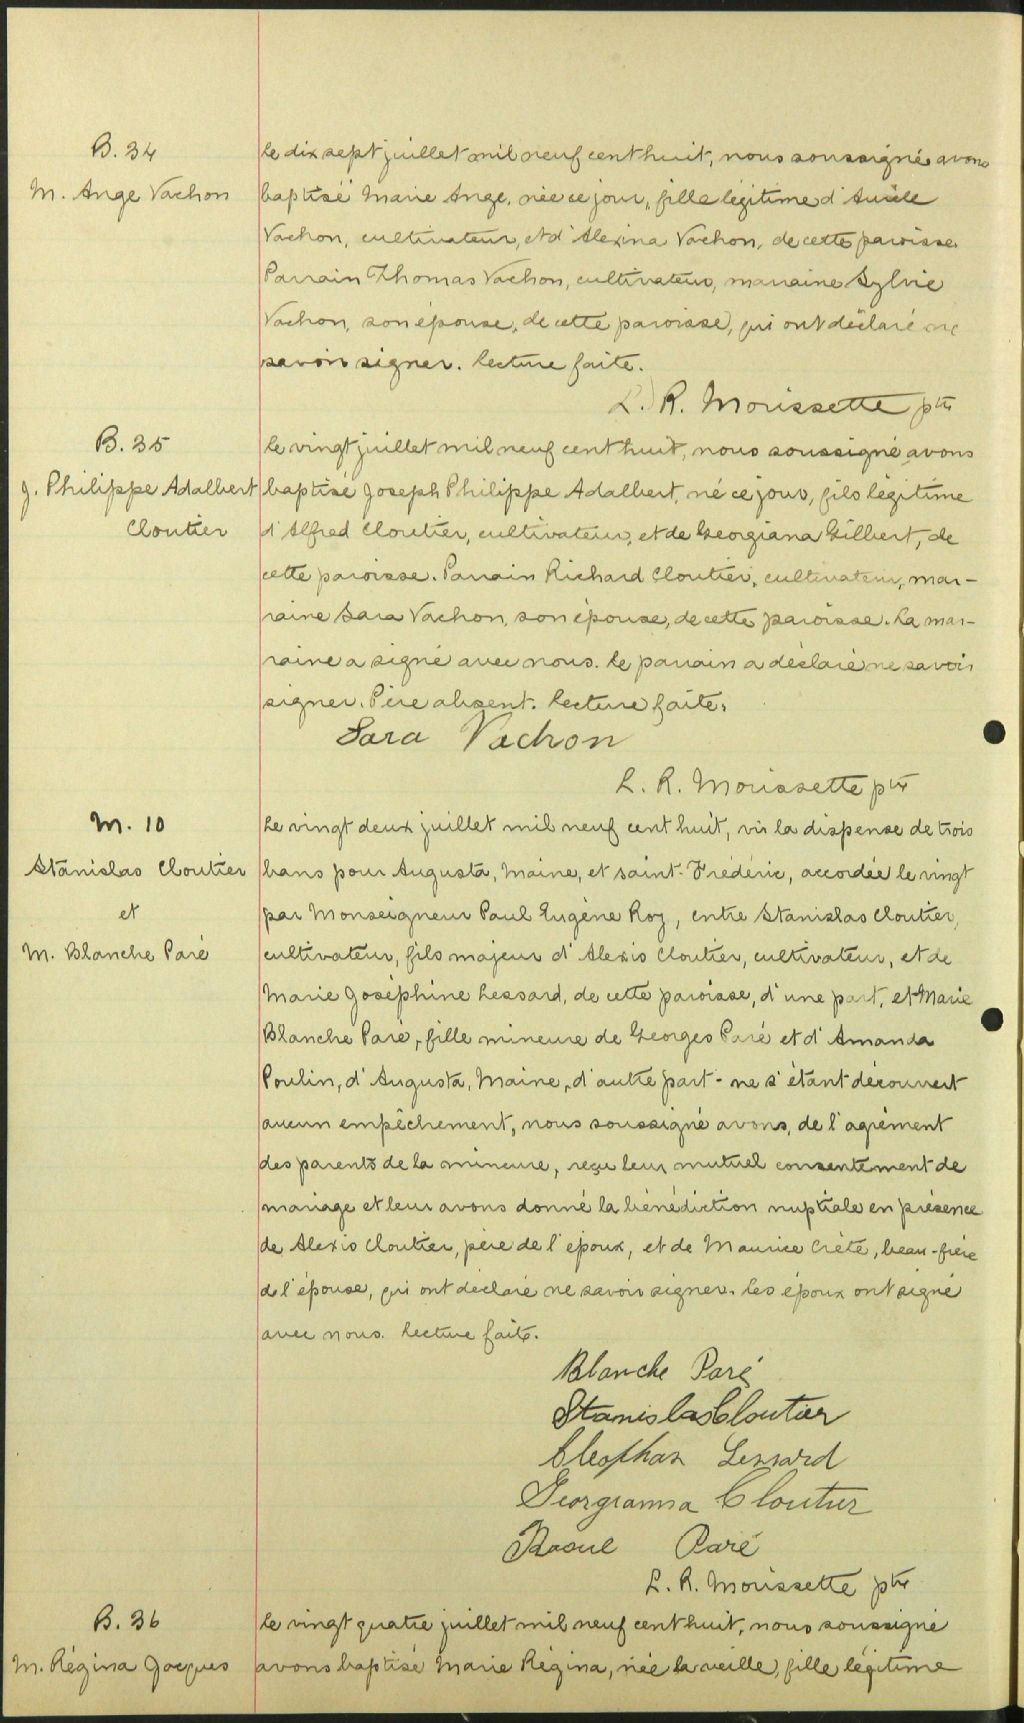 B. 34
M. Ange Vachon
le dix sept juillet mil neuf cent huit, nous soussigné avons
baptisé Marie Ange, née ce jour, fille légitime d'Aurèle
Vachon, cultivateur, et d'Alexina Vachon, de cette paroisse.
Parrain Thomas Vachon, cultivateur, marraine Sylvie
Vachon, son épouse, de cette paroisse, qui ont déclaré ne
savoir signer. lecture faite.
L. R. Morissette ptre
B. 35
J. Philippe Adalbert
Cloutier
le vingt juillet mil neuf cent huit, nous soussigné avons
baptisé Joseph Philippe Adalbert, né ce jour, fils légitime
d'Alfred Cloutier, cultivateur, et de Georgiana Gilbert, de
cette paroisse. Parrain Richard Cloutier, cultivateur, mar-
raine Sara Vachon, son épouse, de cette paroisse. La mar-
raine a signé avec nous. le parrain a déclaré ne savoir
signer. Père absent. lecture faite.
Sara Vachon
L. R. Morissette ptre
M. 10
Stanislas Cloutier
et
M. Blanche Paré
Le vingt deux juillet mil neuf cent huit, vu la dispense de trois
bans pour Augusta, Maine, et saint-Frédéric, accordée le vingt
par Monseigneur Paul Eugène Roy, entre Stanislas Cloutier,
cultivateur, fils majeur d'Alexis Cloutier, cultivateur, et de
Marie Joséphine Lessard, de cette paroisse, d'une part, et Marie
Blanche Paré, fille mineure de Georges Paré et d'Amanda
Poulin, d'Augusta, Maine, d'autre part - ne s'étant découvert
aucun empêchement, nous soussigné avons, de l'agrément
des parents de la mineure, reçu leur mutuel consentement de
mariage et leur avons donné la bénédiction nuptiale en présence
de Alexis Cloutier, père de l'époux, et de Maurice Crète, beau-frère
de l'épouse, qui ont déclaré ne savoir signer. les époux ont signé
avec nous. lecture faite.
Blanche Paré
Stanislas Cloutier
Cleophas Lessard
Georgianna Cloutier
Raoul Paré
L. R. Morissette ptre
B. 36
M. Régina Jacques
le vingt quatre juillet mil neuf cent huit, nous soussigné
avons baptisé Marie Régina, née la veille, fille légitime